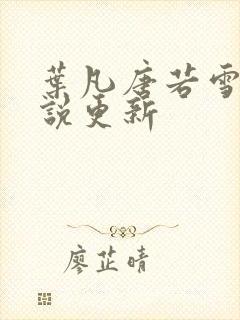 葉凡唐若雪
說更新
廖芷晴